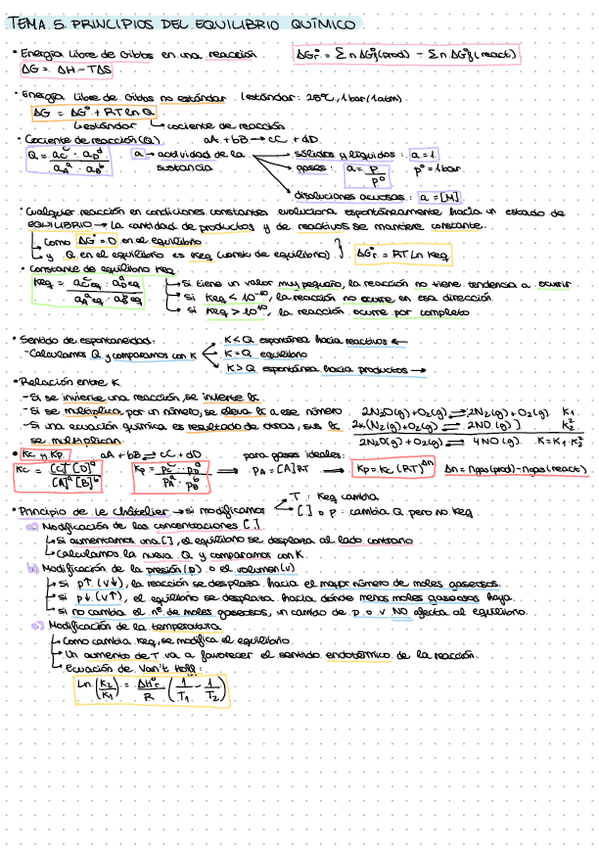 TEMA 5. PRINCIPIOS DEL EQUILIBRIO QUÍMICO
• Energía Libre de Gibbs en una reacción ΔG°r = Σ n ΔG°f(prod) - Σ n ΔG°f(react)
ΔG = ΔH - TΔS
• Energía Libre de Gibbs no estándar (estándar: 25°C, 1 bar/1atm)
ΔG = ΔG° + RT ln Q
↳ estándar ↳ cociente de reacción
• Cociente de reacción (Q) aA + bB → cC + dD
Q = aC^c · aD^d / aA^a · aB^b a → actividad de la sustancia
sólidos y líquidos: a = 1
gases: a = P/P° p° = 1 bar
disoluciones acuosas: a = [M]
• Cualquier reacción en condiciones constantes evoluciona espontáneamente hacia un estado de
EQUILIBRIO → La cantidad de productos y de reactivos se mantiene constante.
↳ Como ΔG = 0 en el equilibrio
↳ y Q en el equilibrio es Keq (const de equilibrio) } ΔG°r = RT ln Keq
• Constante de equilibrio Keq
Keq = aC^c eq · aD^d eq / aA^a eq · aB^b eq
↳ Si tiene un valor muy pequeño, la reacción no tiene tendencia a ocurrir
↳ Si Keq < 10^-10, la reacción no ocurre en esa dirección
↳ Si Keq > 10^10, la reacción ocurre por completo
• Sentido de espontaneidad: K < Q espontánea hacia reactivos ←
- Calculamos Q y comparamos con K K = Q equilibrio
K > Q espontánea hacia productos →
• Relación entre K
- Si se invierte una reacción, se invierte k
- Si se multiplica por un número, se eleva k a ese número 2N2O(g) + O2(g) ⇌ 2N2(g) + O2(g) K1
- Si una ecuación química es resultado de otras, sus k 2x(N2(g) + O2(g) ⇌ 2NO(g)) K2²
se multiplican. 2N2O(g) + O2(g) ⇌ 4NO(g) K = K1·K2²
• Kc y Kp aA + bB ⇌ cC + dD para gases ideales:
Kc = [C]^c [D]^d / [A]^a [B]^b Kp = pC^c · pD^d / pA^a · pB^b → PA = [A]RT → Kp = Kc (RT)^Δn Δn = ngas(prod) - ngas(react)
• Principio de Le Châtelier → si modificamos T : Keq cambia
[ ] o P : cambia Q pero no Keq
a) Modificación de las concentraciones [ ]
↳ Si aumentamos una [ ], el equilibrio se desplaza al lado contrario
↳ Calculamos la nueva Q y comparamos con K.
b) Modificación de la presión (p) o el volumen (v)
↳ Si p↑ (v↓), la reacción se desplaza hacia el mayor número de moles gaseosos.
↳ Si p↓ (v↑), el equilibrio se desplaza hacia donde menos moles gaseosos haya.
↳ Si no cambia el nº de moles gaseosos, un cambio de p o v NO afecta al equilibrio.
c) Modificación de la temperatura
↳ Como cambia Keq, se modifica el equilibrio.
↳ Un aumento de T va a favorecer el sentido endotérmico de la reacción.
↳ Ecuación de Van't Hoff:
Ln (K2/K1) = ΔH°r / R (1/T1 - 1/T2)